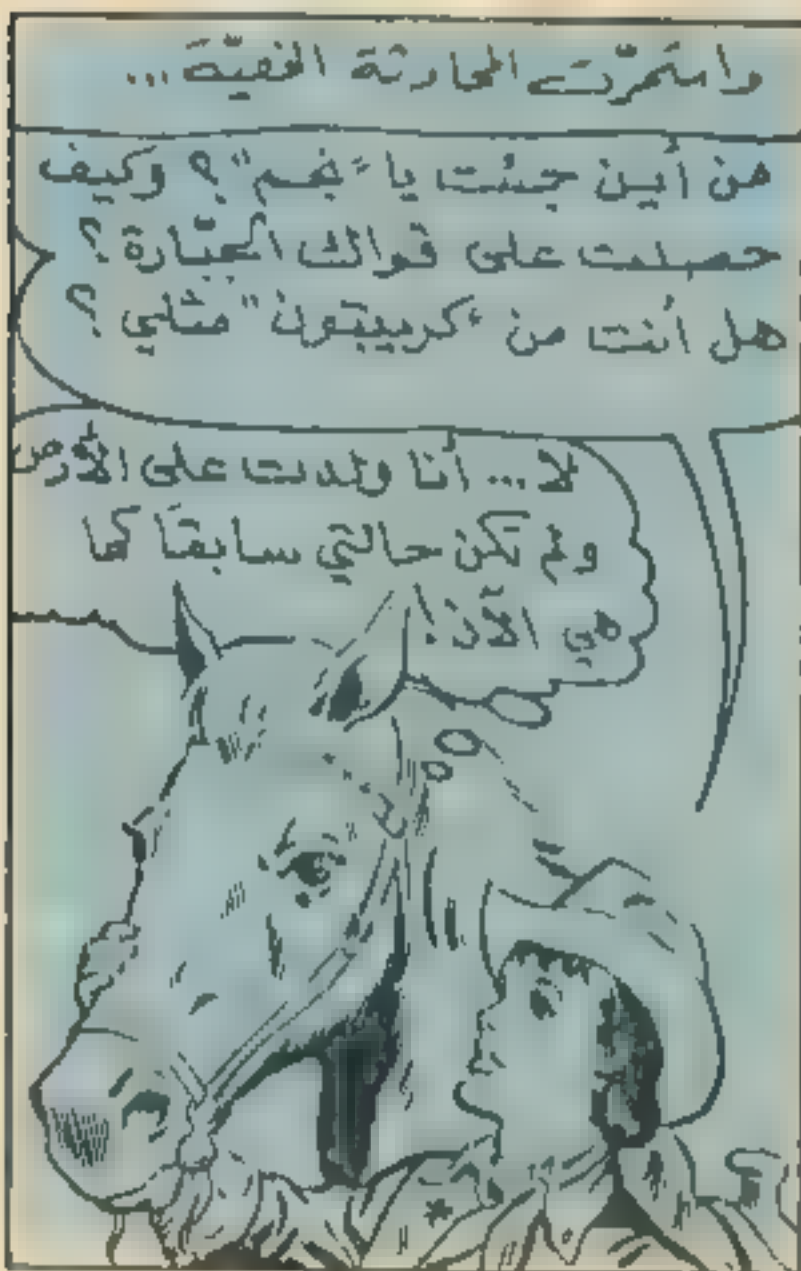 واستمرّت المحادثة الخفيّة ...
من أين جئت يا "نجم"؟ وكيف
حصلت على قواك الجبّارة؟
هل أنت من "كريبتون" مثلي؟
لا ... أنا ولدت على الأرض
ولم تكن حالتي سابقاً كما
هي الآن!